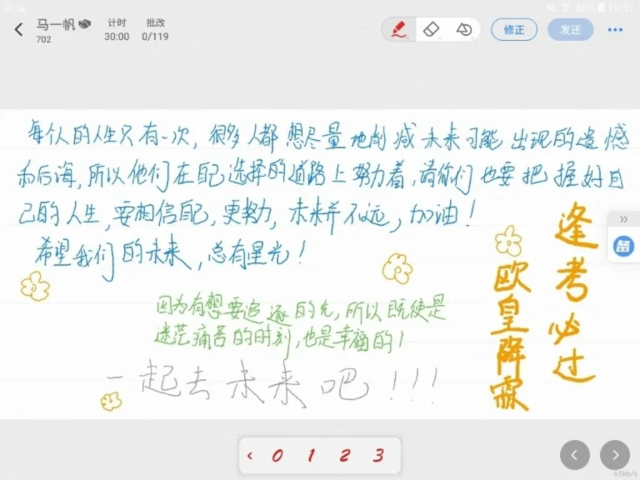 马一帆
702
计时
30:00
批改
0/119
修正
发还
每个人的人生只有一次，很多人都想尽量地削减未来可能出现的遗憾
和后悔，所以他们在自己选择的道路上努力着，请你们也要把握好自
己的人生，要相信自己，更努力，未来并不远，加油！
希望我们的未来，总有星光！
逢考必过
欧皇降霖
因为有想要追逐的光，所以既使是
迷茫痛苦的时刻，也是幸福的！
一起去未来吧！！！
备
0 1 2 3